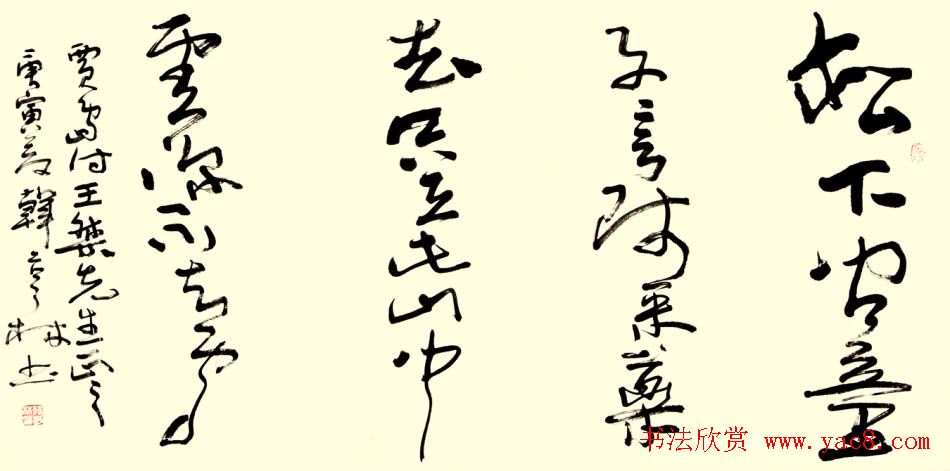 松下問童
子言師采藥
去只在此山中
雲深不知處
賈島詩王先生正之
庚寅夏韓林書
书法欣赏 www.yac8.com